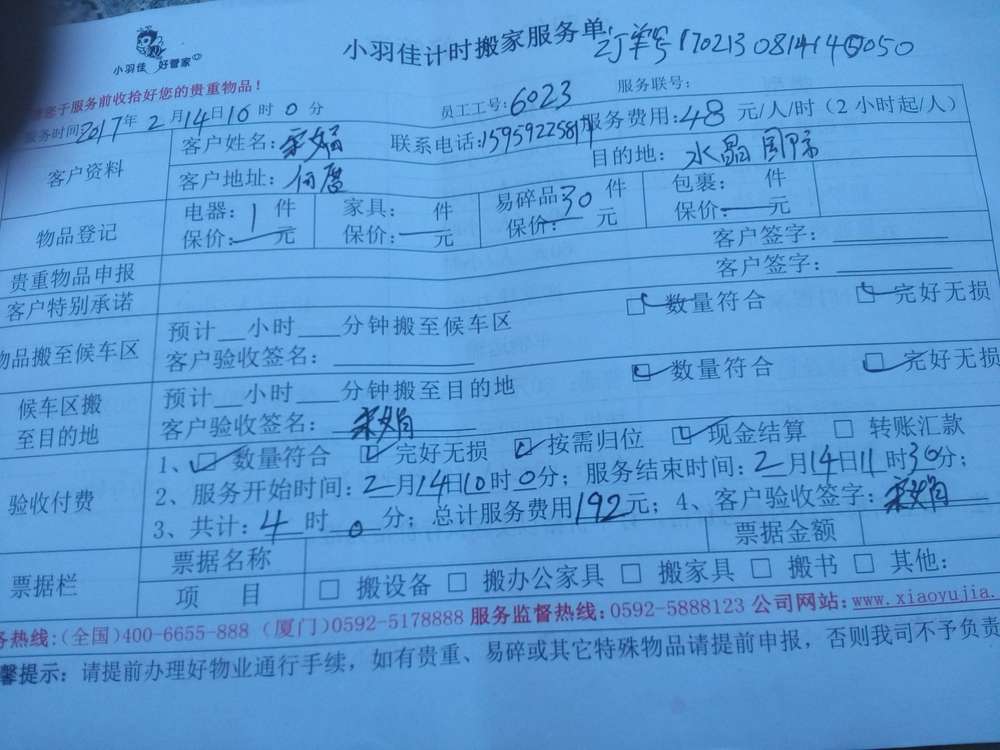 小羽佳 好管家
小羽佳计时搬家服务单 订单号170213081414
您于服务前收拾好您的贵重物品！
员工工号：6023 服务联号：
服务时间2017年2月14日10时0分
服务费用：48元/人/时（2小时起/人）
客户资料 客户姓名： 联系电话：
客户地址：何厝 目的地：水晶国际
物品登记 电器：1件 家具： 件 易碎品30件 包裹： 件
保价：—元 保价：—元 保价：—元 保价：—元
贵重物品申报 客户签字：
客户特别承诺 客户签字：
物品搬至候车区 预计 小时 分钟搬至候车区 数量符合 完好无损
客户验收签名：
候车区搬至目的地 预计 小时 分钟搬至目的地 数量符合 完好无损
客户验收签名：
验收付费 1、数量符合 完好无损 按需归位 现金结算 转账汇款
2、服务开始时间：2月14日10时0分；服务结束时间：2月14日11时30分；
3、共计：4时0分；总计服务费用192元；4、客户验收签字：
票据栏 票据名称 票据金额
项 目 搬设备 搬办公家具 搬家具 搬书 其他：
务热线：（全国）400-6655-888（厦门）0592-5178888 服务监督热线：0592-5888123 公司网站：www.xiaoyujia.
馨提示：请提前办理好物业通行手续，如有贵重、易碎或其它特殊物品请提前申报，否则我司不予负责